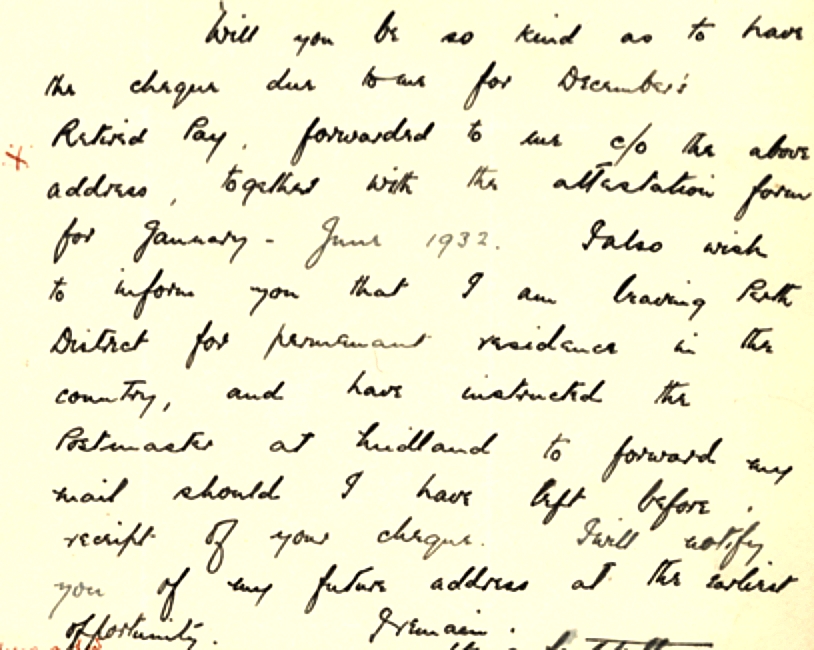 Will you be so kind as to have
the cheque due to me for December's
Retired Pay, forwarded to me c/o the above
address, together with the attestation form
for January - June 1932. I also wish
to inform you that I am leaving Perth
District for permanant residence in the
country, and have instructed the
Postmaster at Midland to forward my
mail should I have left before
receipt of your cheque. I will notify
you of my future address at the earliest
opportunity. I remain.